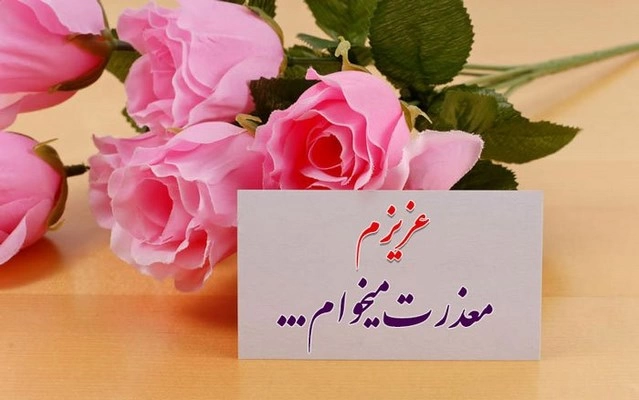 عزیزم
معذرت میخوام...